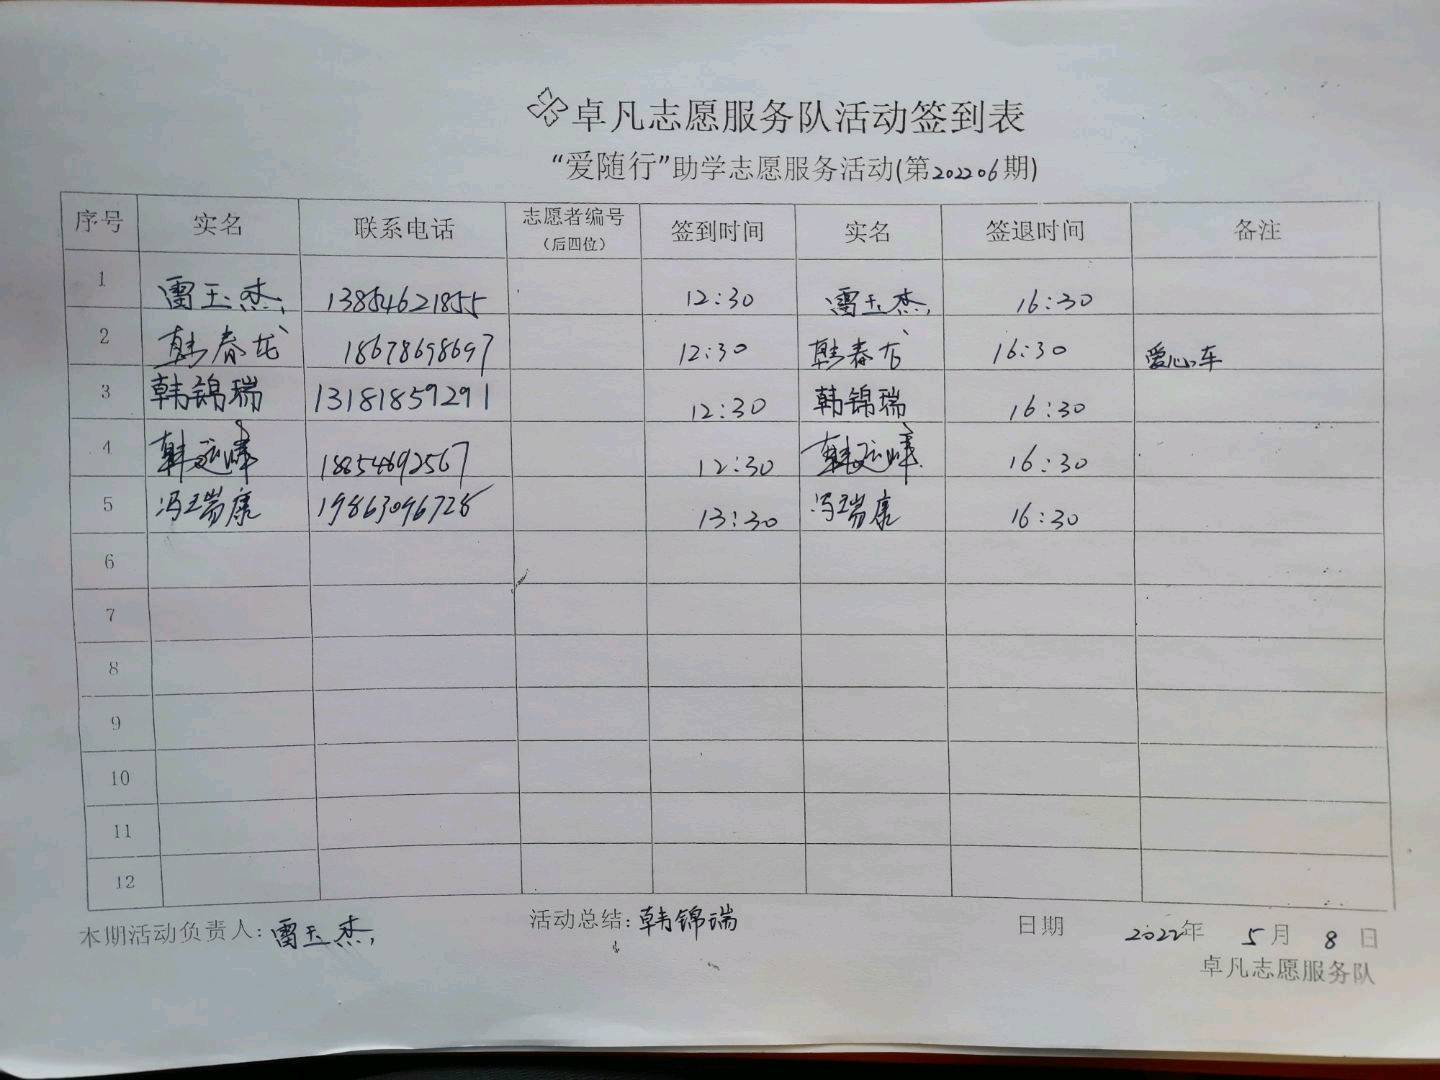 卓凡志愿服务队活动签到表
“爱随行”助学志愿服务活动(第202206期)
序号 实名 联系电话 志愿者编号（后四位） 签到时间 实名 签退时间 备注
1 雷玉杰 13854621855 12:30 雷玉杰 16:30
2 韩春龙 18678698697 12:30 韩春龙 16:30 爱心车
3 韩锦瑞 13181859291 12:30 韩锦瑞 16:30
4 韩延峰 18854692567 12:30 韩延峰 16:30
5 冯瑞康 19863096728 13:30 冯瑞康 16:30
6
7
8
9
10
11
12
本期活动负责人：雷玉杰 活动总结：韩锦瑞 日期 2022年 5月 8日
卓凡志愿服务队